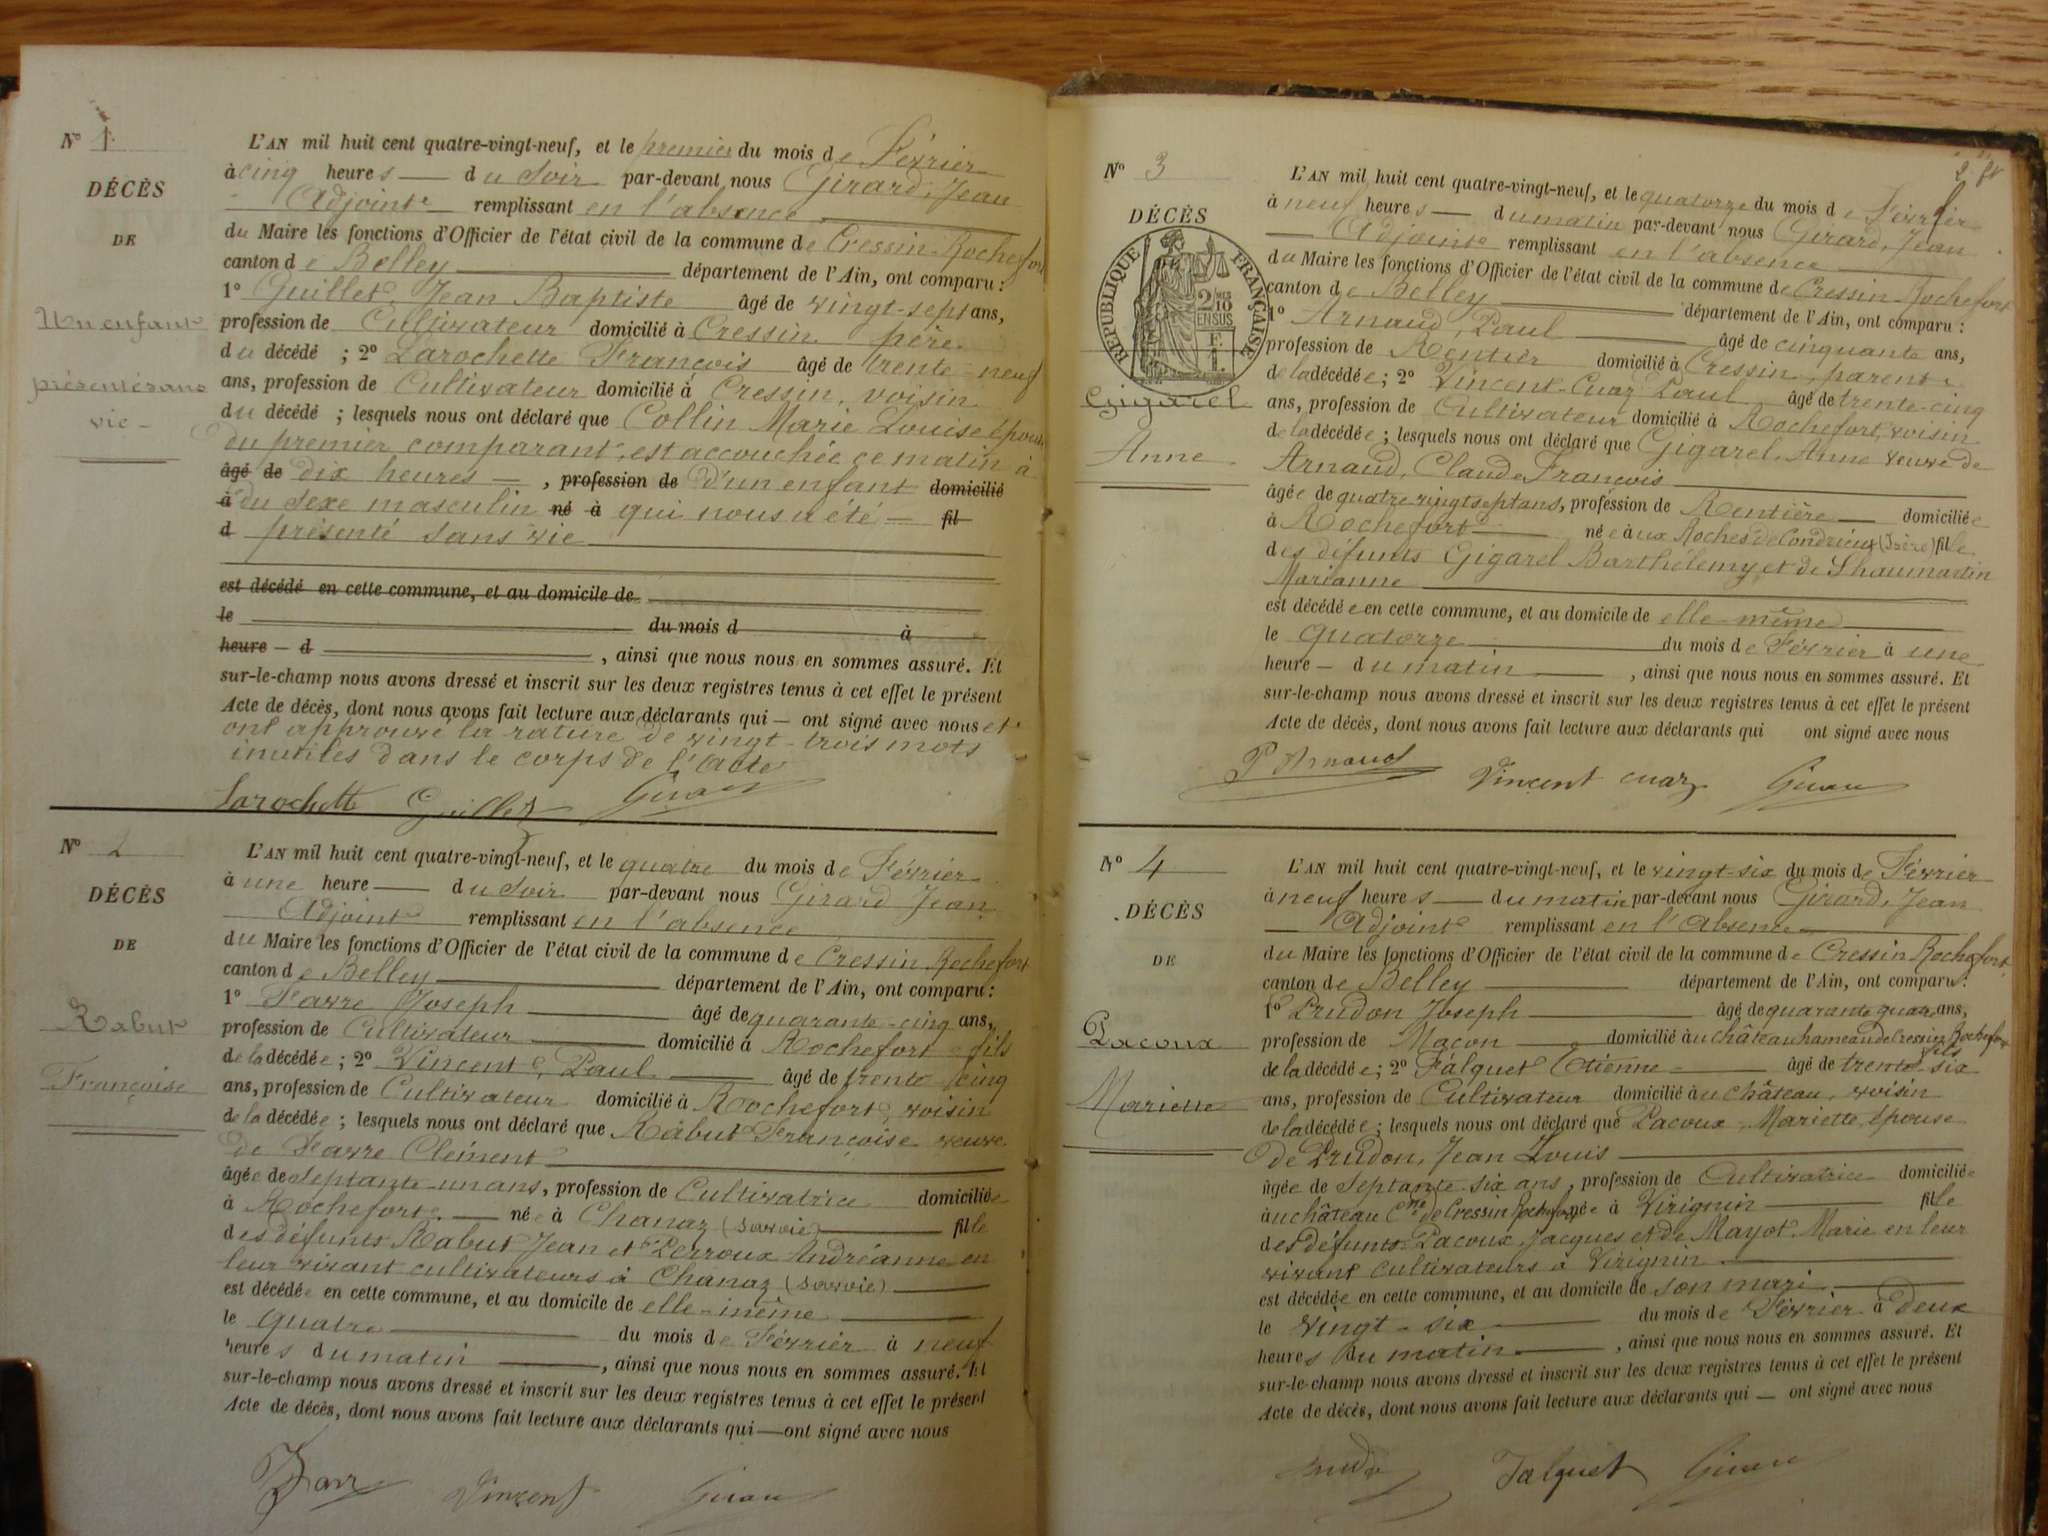 N° 1
DÉCÈS
DE
Un enfant
présenté sans
vie
L'AN mil huit cent quatre-vingt-neuf, et le premier du mois de Février
à cinq heures du soir par-devant nous Girard, Jean
Adjoint remplissant en l'absence
du Maire les fonctions d'Officier de l'état civil de la commune de Cressin-Rochefort
canton de Belley département de l'Ain, ont comparu :
1° Guillet, Jean Baptiste âgé de vingt-sept ans,
profession de Cultivateur domicilié à Cressin père
du décédé ; 2° Larochette François âgé de trente-neuf
ans, profession de Cultivateur domicilié à Cressin, voisin
du décédé ; lesquels nous ont déclaré que Collin Marie Louise épouse
du premier comparant, est accouchée ce matin à
âgé de dix heures , profession de d'un enfant domicilié
à du sexe masculin né à qui nous a été fil
d présenté sans vie
est décédé en cette commune, et au domicile de
le du mois d à
heure d , ainsi que nous nous en sommes assuré. Et
sur-le-champ nous avons dressé et inscrit sur les deux registres tenus à cet effet le présent
Acte de décès, dont nous avons fait lecture aux déclarants qui ont signé avec nous et
ont approuvé la rature de vingt-trois mots
inutiles dans le corps de l'acte
Larochette Guillet Girard
N° 2
DÉCÈS
DE
Rabut
Françoise
L'AN mil huit cent quatre-vingt-neuf, et le quatre du mois de Février
à une heure du soir par-devant nous Girard Jean
Adjoint remplissant en l'absence
du Maire les fonctions d'Officier de l'état civil de la commune de Cressin Rochefort
canton de Belley département de l'Ain, ont comparu :
1° Favre Joseph âgé de quarante-cinq ans,
profession de Cultivateur domicilié à Rochefort fils
de la décédée ; 2° Vincent, Paul âgé de trente cinq
ans, profession de Cultivateur domicilié à Rochefort, voisin
de la décédée ; lesquels nous ont déclaré que Rabut Françoise veuve
de Favre Clément
âgée de septante-un ans, profession de Cultivatrice domiciliée
à Rochefort née à Chanaz (Savoie) fille
des défunts Rabut Jean et Perroux Andréanne en
leur vivant cultivateurs à Chanaz (Savoie)
est décédée en cette commune, et au domicile de elle-même
le quatre du mois de Février à neuf
heures du matin , ainsi que nous nous en sommes assuré. Et
sur-le-champ nous avons dressé et inscrit sur les deux registres tenus à cet effet le présent
Acte de décès, dont nous avons fait lecture aux déclarants qui ont signé avec nous
Favre Vincent Girard
N° 3
DÉCÈS
RÉPUBLIQUE FRANÇAISE
2/10 EN SUS
Gigarel
Anne
L'AN mil huit cent quatre-vingt-neuf, et le quatorze du mois de Février
à neuf heures du matin par-devant nous Girard, Jean
Adjoint remplissant en l'absence
du Maire les fonctions d'Officier de l'état civil de la commune de Cressin-Rochefort
canton de Belley département de l'Ain, ont comparu :
1° Arnaud, Paul âgé de cinquante ans,
profession de Rentier domicilié à Cressin, parent
de la décédée ; 2° Vincent-Cuaz Paul âgé de trente-cinq
ans, profession de Cultivateur domicilié à Rochefort, voisin
de la décédée ; lesquels nous ont déclaré que Gigarel, Anne veuve de
Arnaud, Claude François
âgée de quatre vingt sept ans, profession de Rentière domiciliée
à Rochefort née aux Roches de Condrieux (Isère) fille
des défunts Gigarel Barthélemy et de Shaumartin
Marianne
est décédée en cette commune, et au domicile de elle-même
le quatorze du mois de Février à une
heure du matin , ainsi que nous nous en sommes assuré. Et
sur-le-champ nous avons dressé et inscrit sur les deux registres tenus à cet effet le présent
Acte de décès, dont nous avons fait lecture aux déclarants qui ont signé avec nous
P Arnaud Vincent cuaz Girard
N° 4
DÉCÈS
DE
Pacoux
Mariette
L'AN mil huit cent quatre-vingt-neuf, et le vingt-six du mois de Février
à neuf heures du matin par-devant nous Girard, Jean
Adjoint remplissant en l'absence
du Maire les fonctions d'Officier de l'état civil de la commune de Cressin Rochefort
canton de Belley département de l'Ain, ont comparu :
1° Prudon Joseph âgé de quarante quatre ans,
profession de Maçon domicilié au château hameau de Cressin Rochefort fils
de la décédée ; 2° Falquet Etienne âgé de trente-six
ans, profession de Cultivateur domicilié au château, voisin
de la décédée ; lesquels nous ont déclaré que Pacoux, Mariette, épouse
de Prudon, Jean Louis
âgée de septante-six ans, profession de Cultivatrice domiciliée
au château Cne de Cressin Rochefort née à Virignin fille
des défunts Pacoux Jacques et de Mayot Marie en leur
vivant cultivateurs à Virignin
est décédée en cette commune, et au domicile de son mari
le vingt-six du mois de Février à deux
heures du matin , ainsi que nous nous en sommes assuré. Et
sur-le-champ nous avons dressé et inscrit sur les deux registres tenus à cet effet le présent
Acte de décès, dont nous avons fait lecture aux déclarants qui ont signé avec nous
Falquet Girard